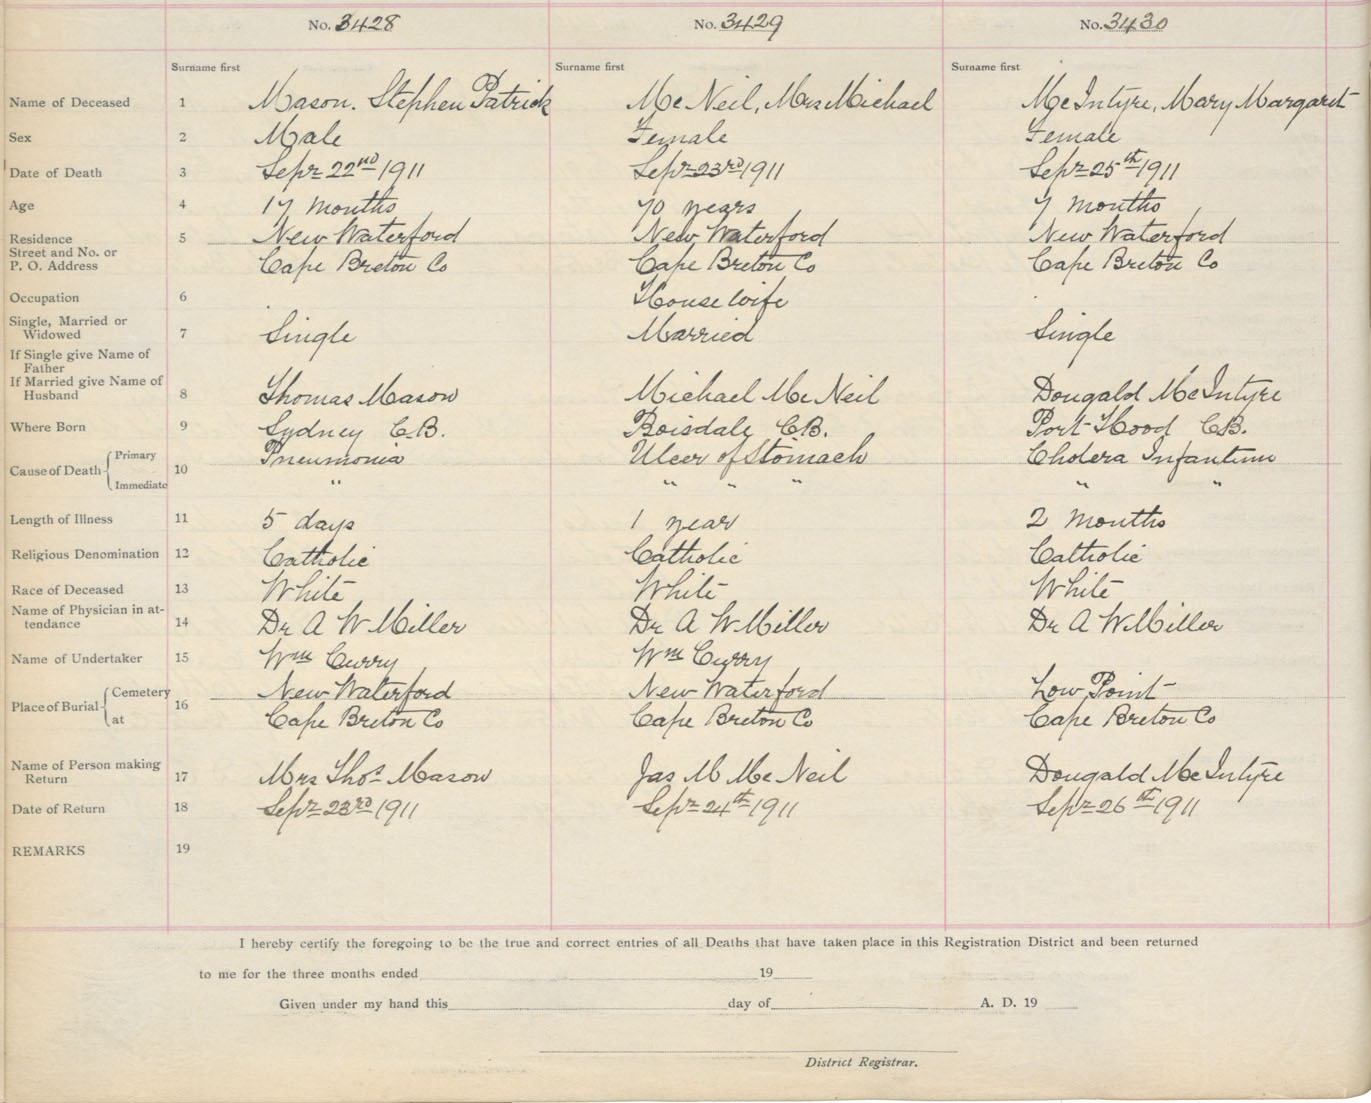 No. 3428 No. 3429 No. 3430
Surname first Surname first Surname first
Name of Deceased 1 Mason. Stephen Patrick Mc Neil, Mrs Michael McIntyre, Mary Margaret
Sex 2 Male Female Female
Date of Death 3 Sepr 22nd 1911 Sepr 23rd 1911 Sepr 25th 1911
Age 4 17 months 70 years 7 months
Residence 5 New Waterford New Waterford New Waterford
Street and No. or
P. O. Address Cape Breton Co Cape Breton Co Cape Breton Co
Occupation 6 House wife
Single, Married or
Widowed 7 Single Married Single
If Single give Name of
Father
If Married give Name of
Husband 8 Thomas Mason Michael Mc Neil Dougald McIntyre
Where Born 9 Sydney C.B. Boisdale C.B. Port Hood C.B.
Cause of Death Primary 10 Pneumonia Ulcer of Stomach Cholera Infantum
Immediate " " " " " "
Length of Illness 11 5 days 1 year 2 months
Religious Denomination 12 Catholic Catholic Catholic
Race of Deceased 13 White White White
Name of Physician in at-
tendance 14 Dr A W Miller Dr A W Miller Dr A W Miller
Name of Undertaker 15 Wm Curry Wm Curry
Place of Burial Cemetery 16 New Waterford New Waterford Low Point
at Cape Breton Co Cape Breton Co Cape Breton Co
Name of Person making
Return 17 Mrs Thos Mason Jas M Mc Neil Dougald McIntyre
Date of Return 18 Sepr 23rd 1911 Sepr 24th 1911 Sepr 26th 1911
REMARKS 19
I hereby certify the foregoing to be the true and correct entries of all Deaths that have taken place in this Registration District and been returned
to me for the three months ended 19
Given under my hand this day of A. D. 19
District Registrar.